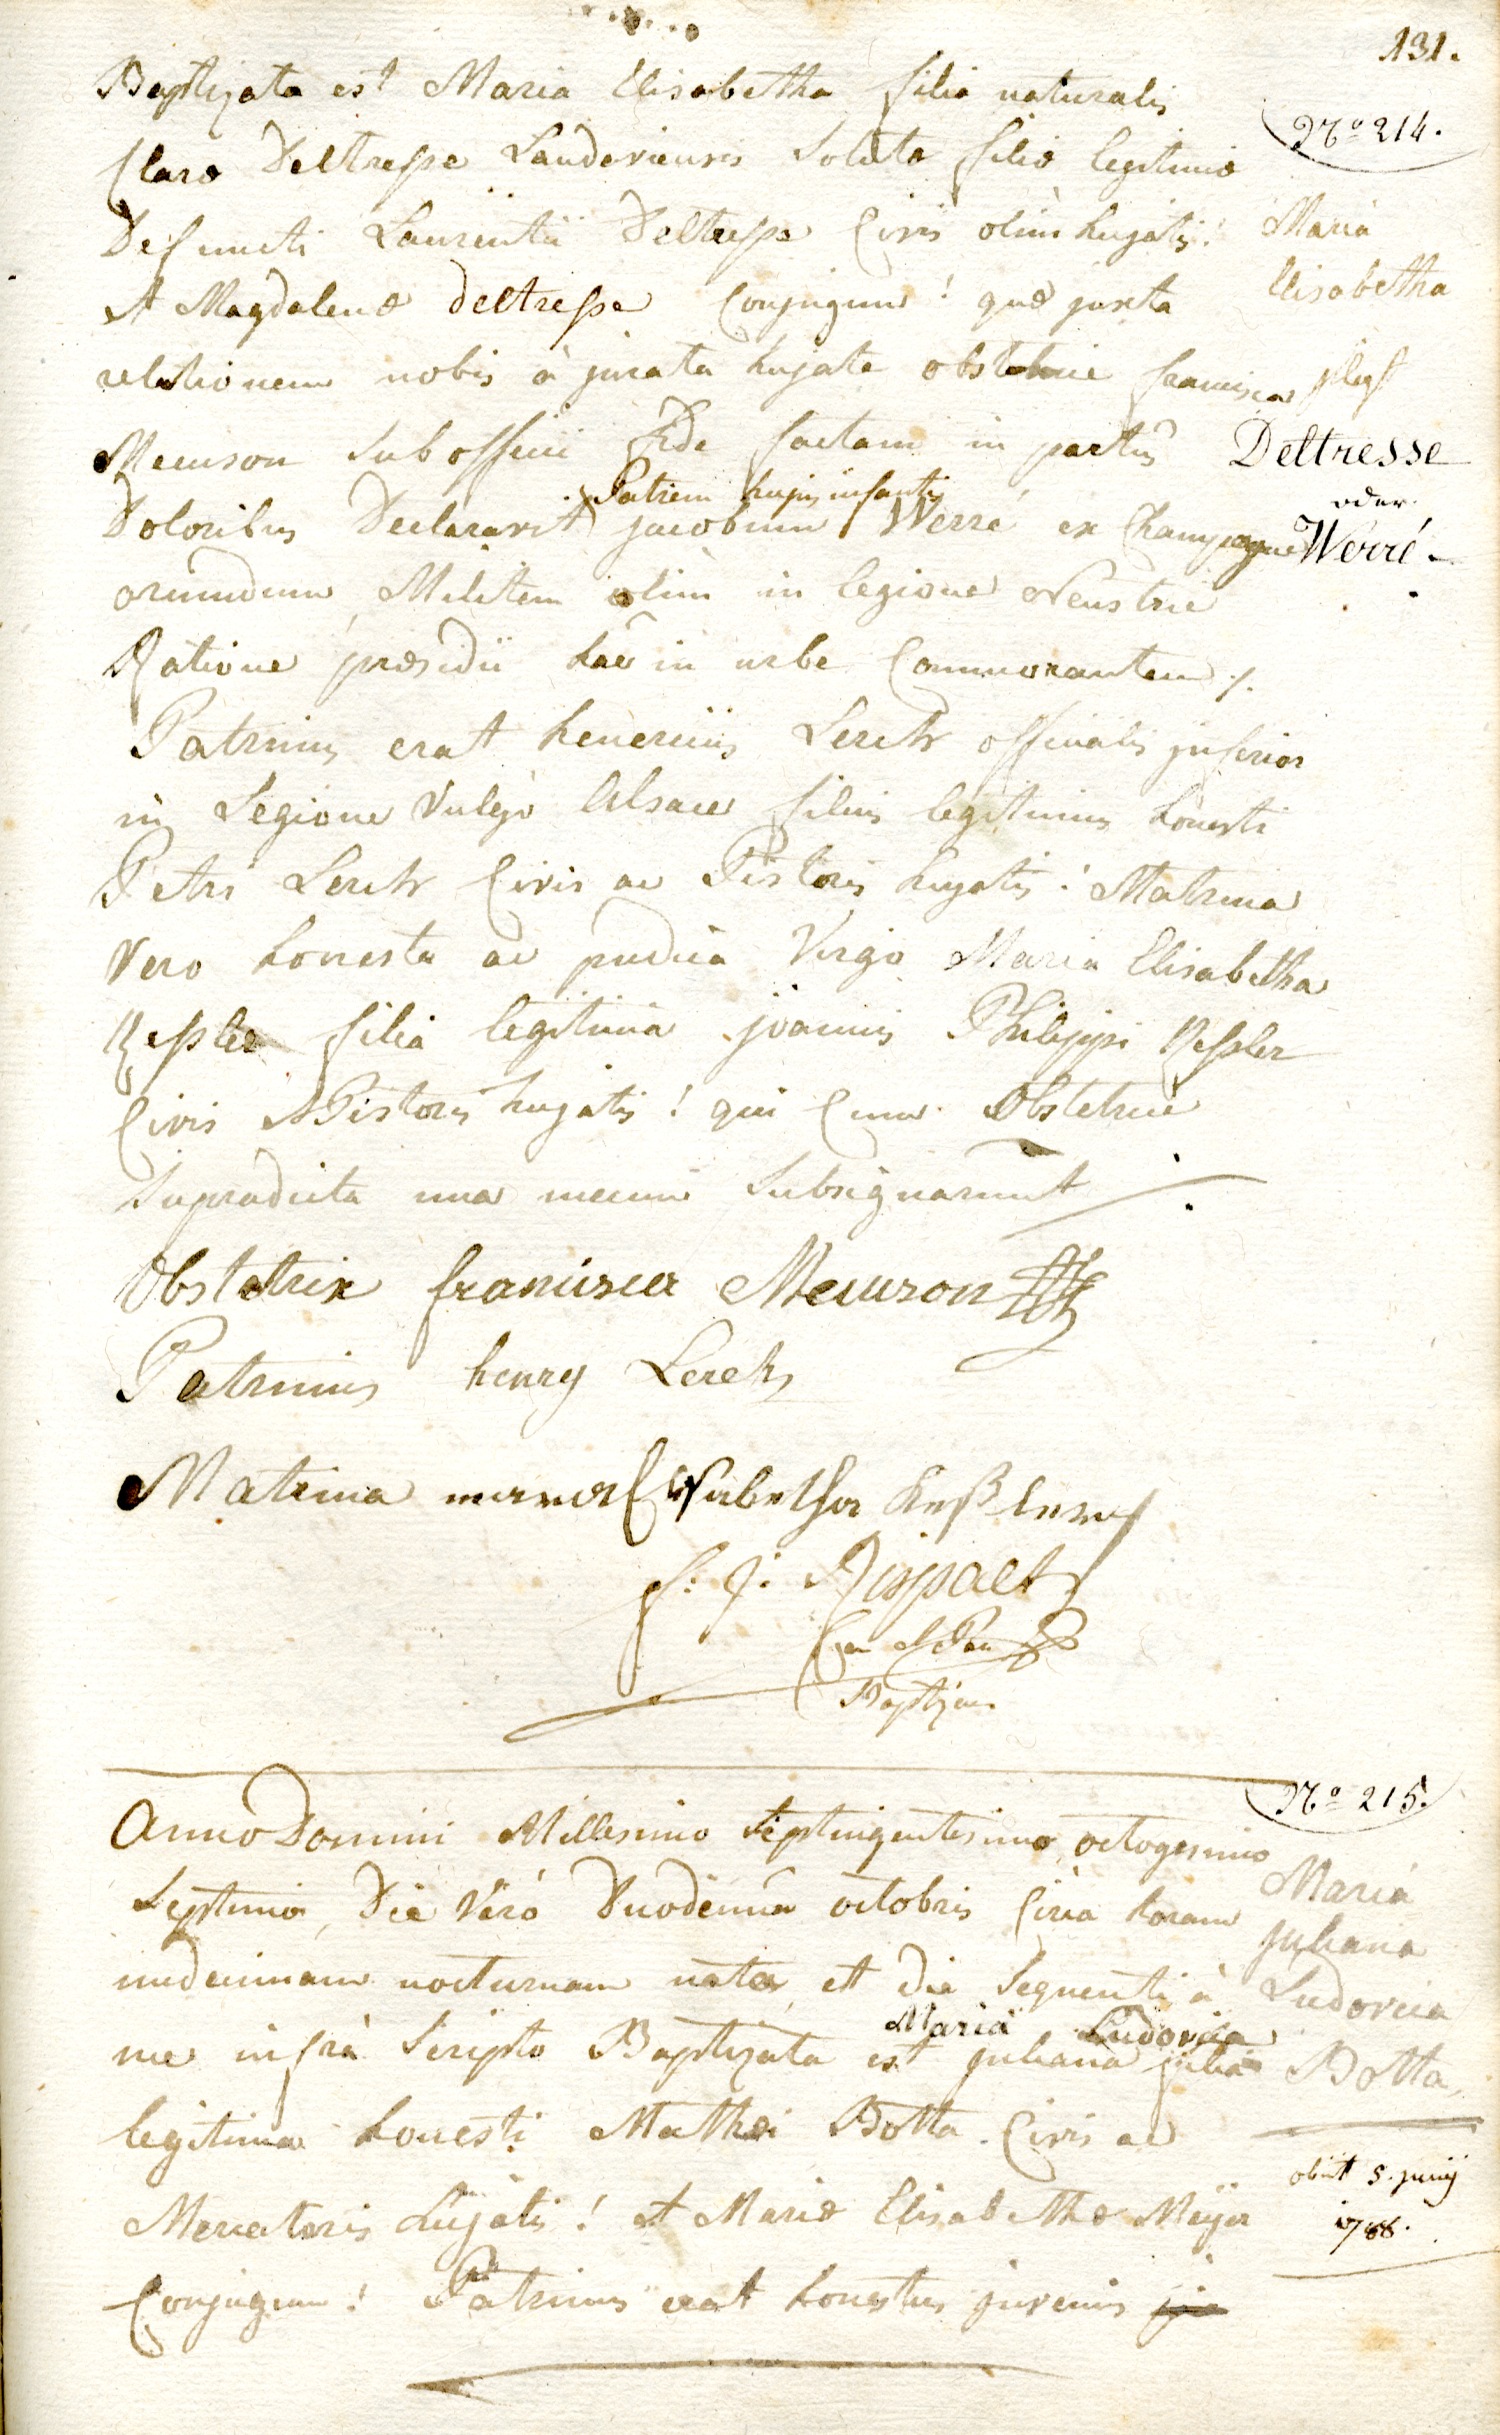 131.
Baptizata est Maria Elisabetha filia naturalis
Clarae Deltresse Landaviensis Soluta filiae legitimae
Defuncti Laurentii Deltresse Civis olim hujatis!
et Magdalenae Deltresse Conjugum! quae juxta
relationem nobis à jurata hujate obstetrice francisca
Meurson sub officii fide factam in partus
Doloribus Declaravit Patrem hujus infantis jacobum Werré ex Champagne
oriundum, Militem olim in legione Neustrie
Ratione praesidii hac in urbe Commorantem ./.
Patrinus erat henericus Lerch officialis inferior
in Legione Vulgò Alsace filius legitimus honesti
Petri Lerch Civis ac Pistoris hujatis! Matrina
Vero honesta ac pudica Virgo Maria Elisabetha
Kessler filia legitima joannis Philippi Kessler
Civis et Pistoris hujatis! qui Cum Obstetrice
Supradicta una mecum Subsignarunt ./.
Obstetrix francisca Meurson
Patrinus henry Lerch
Matrina maria Elisabetha Keßlerin
f: J: Rispalt
Baptizans
No 214.
Maria
Elisabetha
Deltresse
oder
Werré
Anno Domini Millesimo Septingentesimo octogesimo
Septimo, Die Verò Duodecima octobris Circa horam
undecimam nocturnam nata, et die Sequenti à
me infrà Scripto Baptizata est Maria juliana Ludovica filia
legitima honesti Mathaei Botta Civis ac
Mercatoris hujatis! et Mariae Elisabethae Meijer
Conjugum! Patrinus erat honestus juvenis
No 215.
Maria
juliana
Ludovica
Botta
obiit 5. junij
1788.